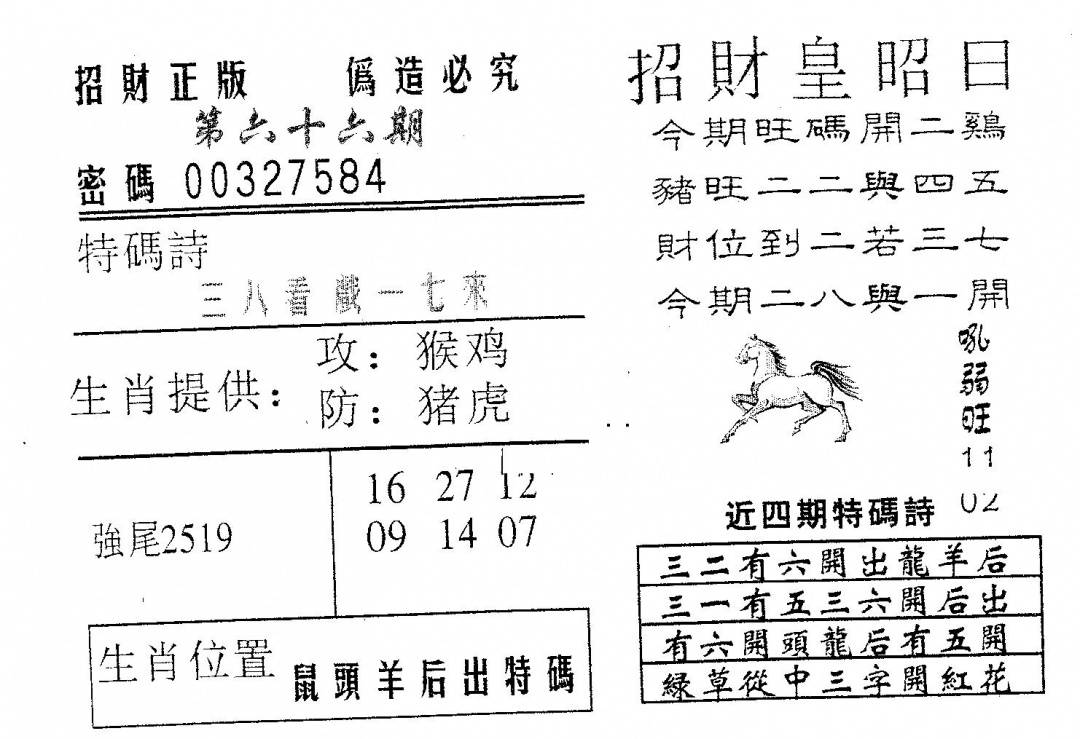 招財正版 偽造必究
第六十六期
密碼 00327584
特碼詩
三八看戲一七來
生肖提供：
攻：猴鸡
防：猪虎
強尾2519
16 27 12
09 14 07
生肖位置 鼠頭羊后出特碼
招財皇昭日
今期旺碼開二鷄
豬旺二二與四五
財位到二若三七
今期二八與一開
吼
弱
旺
11
02
近四期特碼詩
三二有六開出龍羊后
三一有五三六開后出
有六開頭龍后有五開
綠草從中三字開紅花